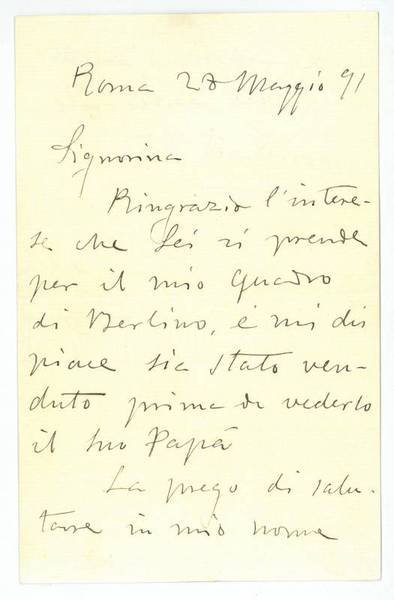 Roma 27 Maggio 91
Signorina
Ringrazio l'interes-
se che Lei si prende
per il mio quadro
di Berlino, e mi dis
piace sia stato ven-
duto prima di vederlo
il suo Papà
La prego di salu-
tare in mio nome